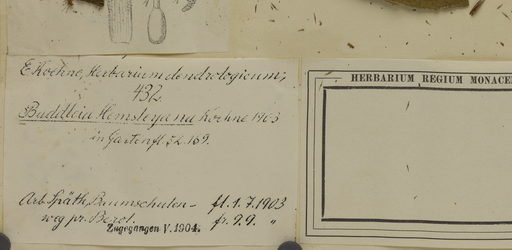 E. Koehne, Herbarium dendrologicum,
432.
Buddleia Hemsleyana Koehne 1903
in Gartenfl. 52. 169.
Arb. Späth, Baumschulen- fl. 1.7.1903
weg pr. Berol. fr. 9.9. "
Zugegangen V. 1904.
HERBARIUM REGIUM MONACE